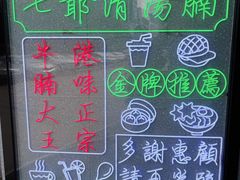 七爺清湯腩
港味正宗
牛腩大王
金牌推薦
多謝惠顧